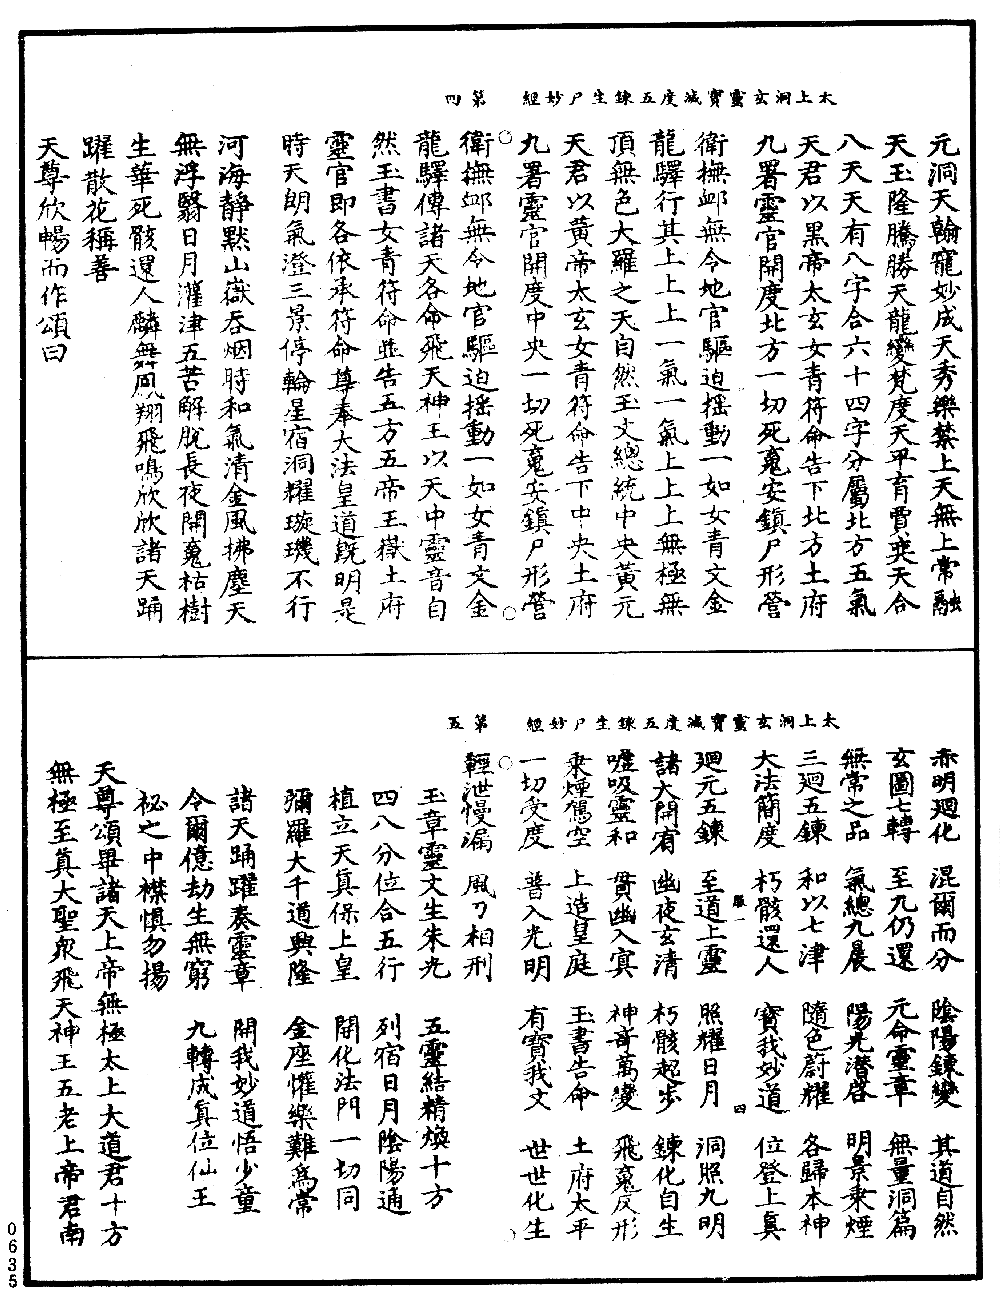 太上洞玄靈寶滅度五鍊生尸妙經　第四
元洞天翰寵妙成天秀樂禁上天無上常融
天玉隆騰勝天龍變梵度天平育賈奕天合
八天天有八字合六十四字分屬北方五氣
天君以黑帝太玄女青符命告下北方土府
九署靈官開度北方一切死䰟安鎮尸形營
衛撫䘏無令地官驅迫摇動一如女青文金
龍驛行其上上上一氣一氣上上上無極無
頂無色大羅之天自然玉文總統中央黃元
天君以黃帝太玄女青符命告下中央土府
九署靈官開度中央一切死䰟安鎮尸形營
衛撫䘏無令地官驅迫摇動一如女青文金
龍驛傳諸天各命飛天神王以天中靈音自
然玉書女青符命並告五方五帝玉嶽土府
靈官即各依承符命尊奉大法皇道旣明是
時天朗氣澄三景停輪星宿洞耀璇璣不行
河海靜默山嶽吞烟時和氣清金風拂塵天
無浮翳日月灌津五苦解脫長夜開䰟枯樹
生華死骸還人麟舞鳳翔飛鳴欣欣諸天踊
躍散花稱善
天尊欣暢而作頌曰
太上洞玄靈寶滅度五鍊生尸妙經　第五
赤明廻化　混爾而分　陰陽鍊變　其道自然
玄圖七轉　至九仍還　元命靈章　無量洞篇
無常之品　氣總九晨　陽光潛啓　明景乘煙
三廻五鍊　和以七津　隨色蔚耀　各歸本神
大法簡度　朽骸還人　寶我妙道　位登上真
服一　四
廻元五鍊　至道上靈　照耀日月　洞照九明
諸大開宥　幽夜玄清　朽骸起步　鍊化自生
嘘吸靈和　貫幽入冥　神奇萬變　飛䰟反形
乘煙駕空　上造皇庭　玉書告命　土府太平
一切受度　普入光明　有寶我文　世世化生
輕泄慢漏　風刀相刑
玉章靈文生朱光　五靈結精煥十方
四八分位合五行　列宿日月陰陽通
植立天真保上皇　開化法門一切同
彌羅大千道興隆　金座懽樂難爲常
諸天踊躍奏靈章　開我妙道悟少童
令爾億劫生無窮　九轉成真位仙王
祕之中襟慎勿揚
天尊頌畢諸天上帝無極太上大道君十方
無極至真大聖衆飛天神王五老上帝君南
0635